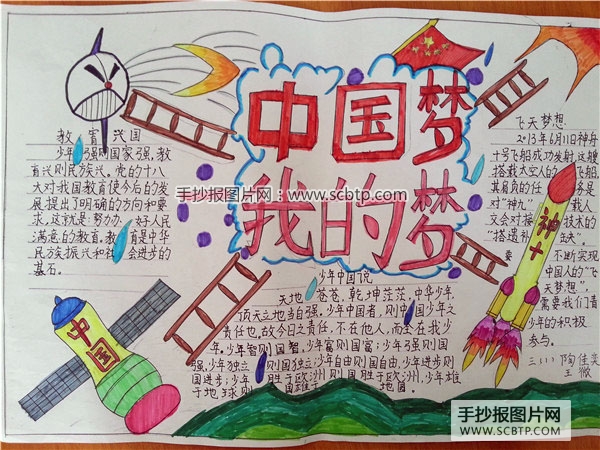 中国梦
我的梦
教育兴国
少年强则国家强,教
育兴则民族兴。党的十八
大对我国教育使今后的发
展提出了明确的方向和要
求,这就是:努力办好人民
满意的教育。教育是中华
民族振兴和社会进步的
基石。
飞天梦想
2013年6月11日神舟
十号飞船成功发射,这艘
搭载太空人的飞船
其肩负的任务是
对“神九”载人
交会对接技术的
“拾遗补缺”。
要不断实现
中国人的“飞
天梦想”,
需要我们青
少年的积极
参与。
三(1)陶佳奕
王薇
少年中国说
天地苍苍,乾坤茫茫,中华少年,
顶天立地当自强。少年中国者,则中国少年之
责任也。故今日之责任,不在他人,而全在我少
年。少年智则国智,少年富则国富;少年强则国
强,少年独立则国独立;少年自由则国自由,少年进步则
国进步;少年胜于欧洲则国胜于欧洲,少年雄
于地球则国雄于地国。
中国
神十
手抄报图片网:www.scbtp.com
手抄报图片网
WWW.SCBTP.COM